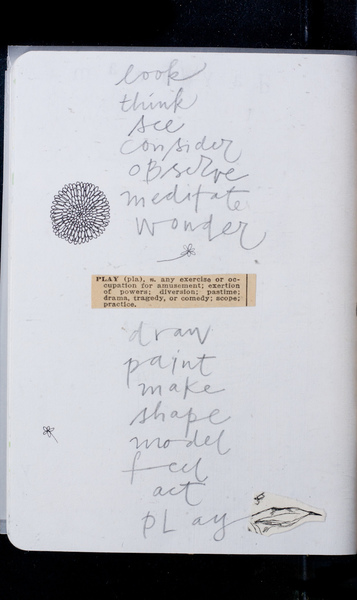 look
think
see
consider
observe
meditate
wonder
PLAY (pla), s. any exercise or oc-
cupation for amusement; exertion
of powers; diversion; pastime;
drama, tragedy, or comedy; scope;
practice.
draw
paint
make
shape
model
feel
act
play